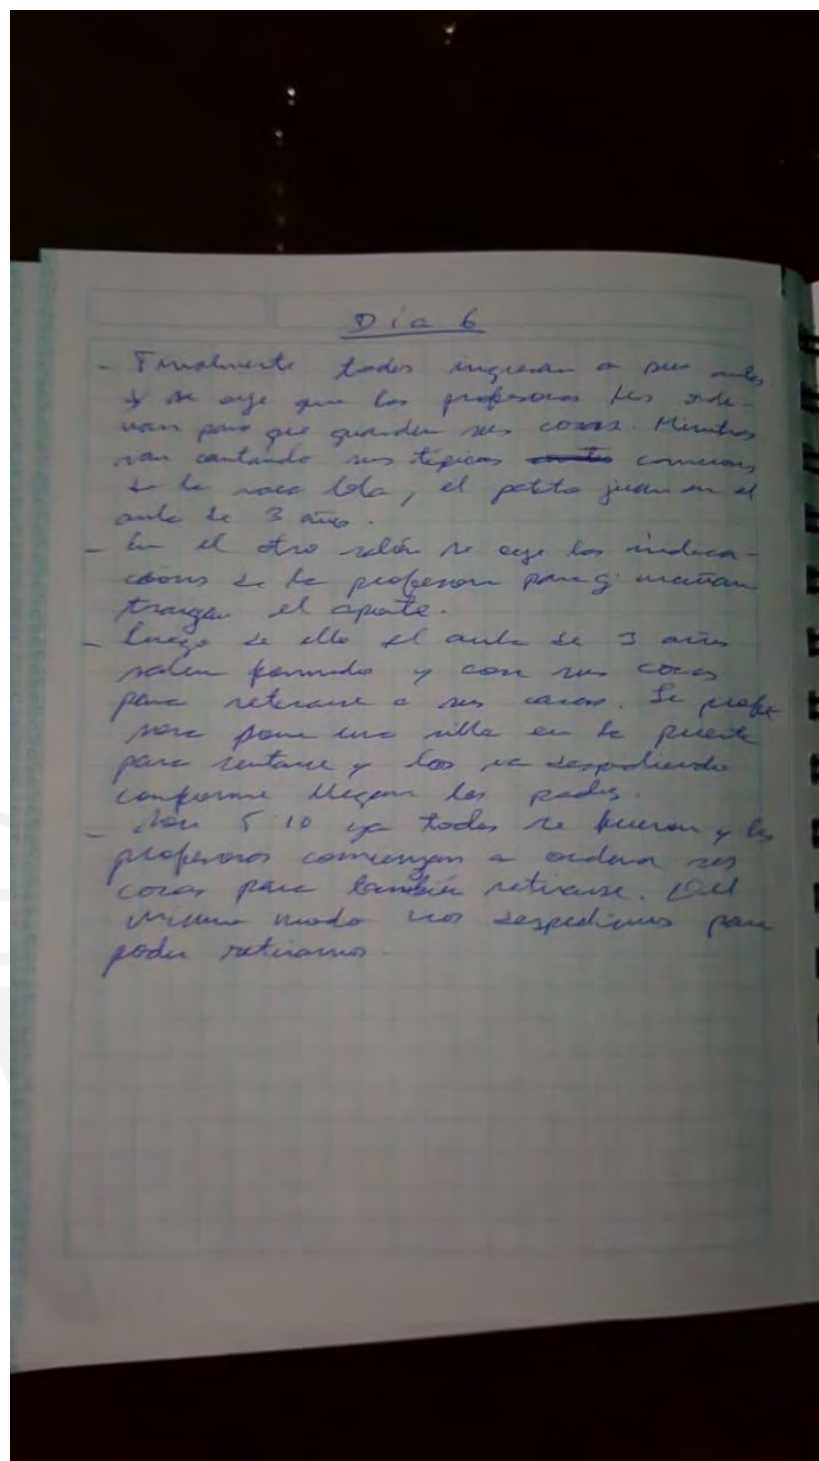 Día 6
- Finalmente todos ingresan a sus aulas
y se oye que las profesoras les orde-
nan para que guarden sus cosas. Mientras
van cantando sus típicas canciones
de la vaca lola, el patito juan en el
aula de 3 años.
- En el otro salón se oye las indica-
ciones de la profesora para q' mañana
traigan el aporte.
- Luego de ello el aula de 3 años
salen formado y con sus cosas
para retirarse a sus casas. La profe
sora pone una silla en la puerta
para sentarse y los va despidiendo
conforme llegan los padres.
- Son 5:10 ya todos se fueron y las
profesoras comienzan a ordenar sus
cosas para también retirarse. Del
mismo modo nos despedimos para
poder retirarnos.